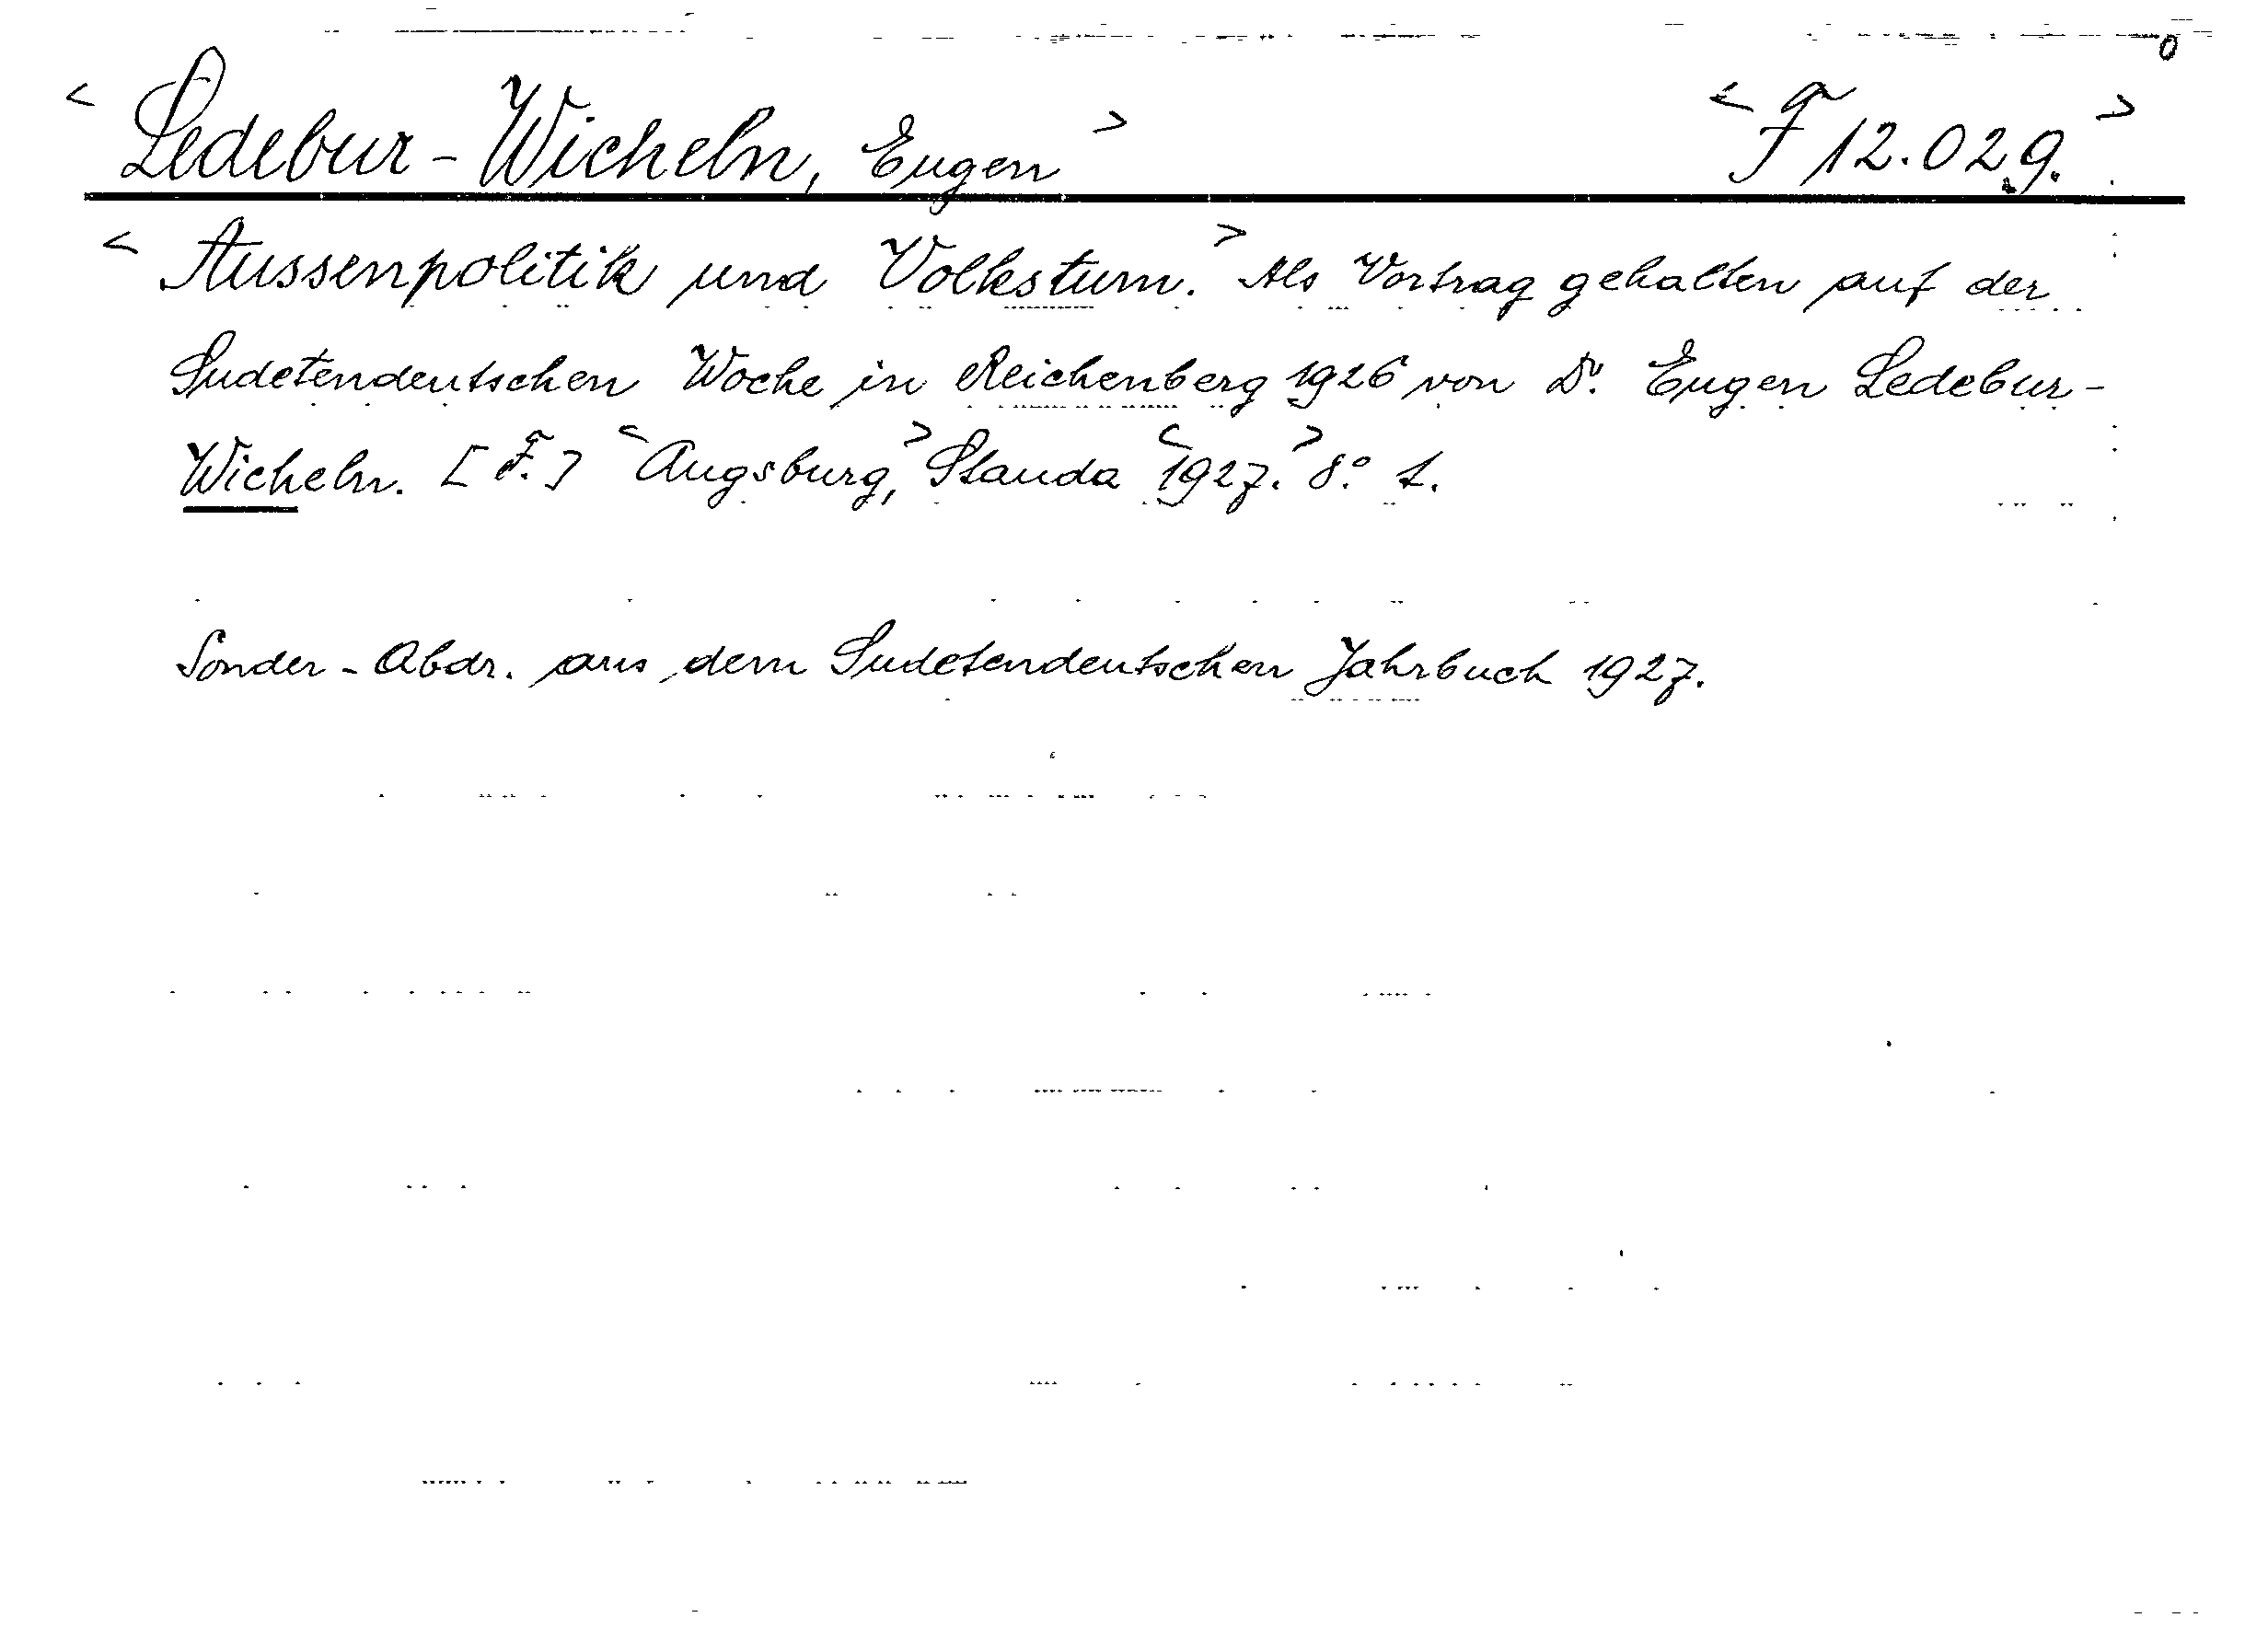 < Ledebur-Wicheln, Eugen > < F 12.029. >
< Aussenpolitik und Volkstum. > Als Vortrag gehalten auf der
Sudetendeutschen Woche in Reichenberg 1926 von Dr. Eugen Ledebur-
Wicheln. [F.] < Augsburg, > Stauda < 1927. > 8° 1.
Sonder-Abdr. aus dem Sudetendeutschen Jahrbuch 1927.